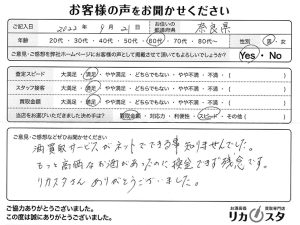 お客様の声をお聞かせください
ご記入日 2022年9月21日 お住いの都道府県 奈良県
年齢 20代・30代・40代・50代・60代・70代・80代〜 性別 男・女
ご意見・ご感想を弊社ホームページにお客様の声として掲載させて頂いてもよろしいでしょうか? Yes・No
査定スピード 大満足・満足・やや満足・どちらでもない・やや不満・不満
スタッフ接客 大満足・満足・やや満足・どちらでもない・やや不満・不満
買取金額 大満足・満足・やや満足・どちらでもない・やや不満・不満
当店をお選びいただきました決め手は? 買取金額・対応力・利便性・スピード・その他( )
ご意見・ご感想などがお聞かせください。
酒買取サービスがネットでできる事知りませんでした。
もっと高価なお酒があったのに換金できず残念です。
リカスタさんありがとうございました。
ご協力ありがとうございました。
この度は誠にありがとうございました。
お酒高価買取専門店
リカスタ